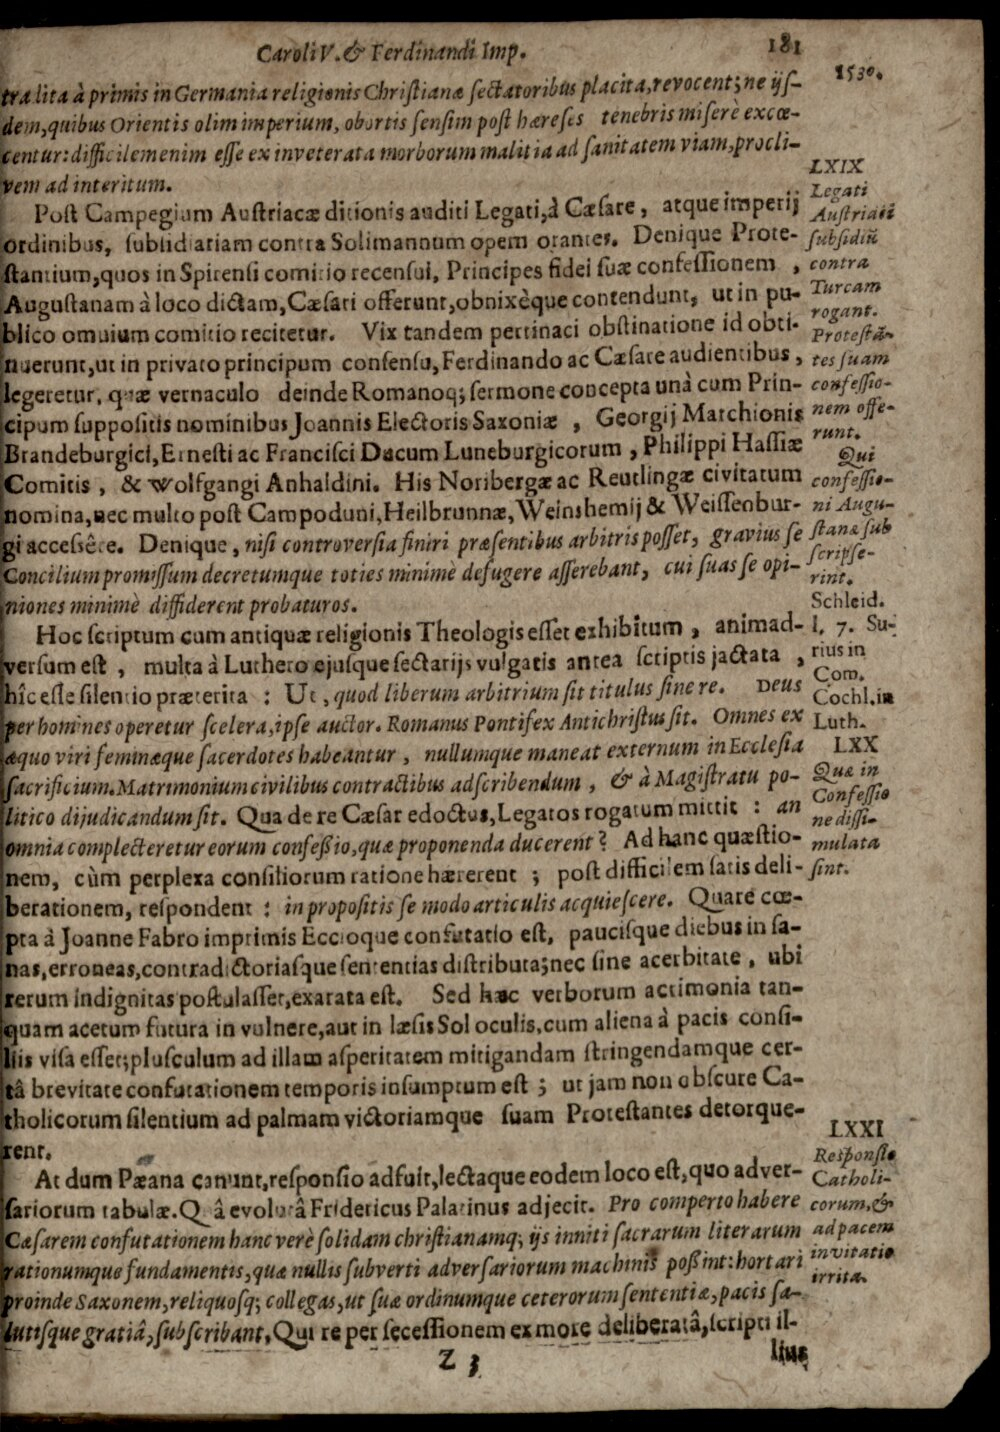 Caroli V. & Ferdinandi Imp.
181
1530.
tralita à primis in Germania religionis Christianæ sectatoribus placita, revocent; ne ijs-
dem, quibus Orientis olim imperium, obortis sensim post hæreses tenebris miserè excœ-
centur: difficilem enim esse ex inveterata morborum malitia ad sanitatem viam, procli-
vem ad interitum.
Post Campegium Austriacæ ditionis auditi Legati, à Cæsare, atque imperij
ordinibus, subsidiariam contra Solimannum opem orantes. Denique Prote-
stantium, quos in Spirensi comitio recensui, Principes fidei suæ confessionem,
Augustanam à loco dictam, Cæsari offerunt, obnixèque contendunt, ut in pu-
blico omnium comitio recitetur. Vix tandem pertinaci obstinatione id obti-
nuerunt, ut in privato principum consensu, Ferdinando ac Cæsare audientibus,
legeretur, quæ vernaculo deinde Romanoq; sermone concepta unà cum Prin-
cipum suppositis nominibus Joannis Electoris Saxoniæ, Georgij Marchionis
Brandeburgici, Ernesti ac Francisci Ducum Luneburgicorum, Philippi Hassiæ
Comitis, & Wolfgangi Anhaldini. His Noribergæ ac Reutlingæ civitatum
nomina, nec multo post Campoduni, Heilbrunnæ, Weinshemij & Weissenbur-
gi accessêre. Denique, nisi controversia finiri præsentibus arbitris posset, gravius se
Concilium promissum decretumque toties minimè defugere asserebant, cui suas se opi-
niones minimè diffiderent probaturos.
Hoc scriptum cum antiquæ religionis Theologis esset exhibitum, animad-
versum est, multa à Luthero ejusque sectarijs vulgatis antea scriptis jactata,
hîc esse silentio præterita: Ut, quod liberum arbitrium sit titulus sine re. Deus
per homines operetur scelera, ipse auctor. Romanus Pontifex Antichristus sit. Omnes ex
æquo viri feminæque sacerdotes habeantur, nullumque maneat externum in Ecclesia
sacrificium. Matrimonium civilibus contractibus adscribendum, & à Magistratu po-
litico dijudicandum sit. Qua de re Cæsar edoctus, Legatos rogatum mittit: an
omnia complecteretur eorum confeßio, quæ proponenda ducerent? Ad hanc quæstio-
nem, cùm perplexa consiliorum ratione hærerent; post difficilem satis deli-
berationem, respondent: in propositis se modo articulis acquiescere. Quare cœ-
pta à Joanne Fabro imprimis Eccioque confutatio est, paucisque diebus in sa-
nas, erroneas, contradictoriasque sententias distributa; nec sine acerbitate, ubi
rerum indignitas postulasset, exarata est. Sed hæc verborum acrimonia tan-
quam acetum futura in vulnere, aut in læsis Sol oculis, cum aliena à pacis consi-
liis visa esset; plusculum ad illam asperitatem mitigandam stringendamque cer-
tâ brevitate confutationem temporis insumptum est; ut jam non obscure Ca-
tholicorum silentium ad palmam victoriamque suam Protestantes detorque-
rent.
At dum Pæana canunt, responsio adfuit, lectaque eodem loco est, quo adver-
sariorum tabulæ. Quâ evolutâ Fridericus Palatinus adjecit. Pro comperto habere
Cæsarem confutationem hanc verè solidam christianamq; ijs inniti sacrarum literarum
rationumque fundamentis, quæ nullis subverti adversariorum machinis poßint: hortari
proinde Saxonem, reliquosq; collegas, ut suæ ordinumque ceterorum sententiæ, pacis sa-
lutisque gratiâ, subscribant. Qui re per secessionem ex more deliberatâ, scripti il-
Z 3
lius
LXIX
Legati
Austriaci
subsidiũ
contra
Turcam
rogant.
Protestã-
tes suam
confessio-
nem offe-
runt.
Qui
confessio-
ni Augu-
stanæ sub
scripse-
rint.
Schleid.
l. 7. Su-
rius in
Com.
Cochl. in
Luth.
LXX
Quæ in
Confessio
ne dissi-
mulata
sint.
LXXI
Responsio
Catholi-
corum, &
ad pacem
invitatio
irrita.